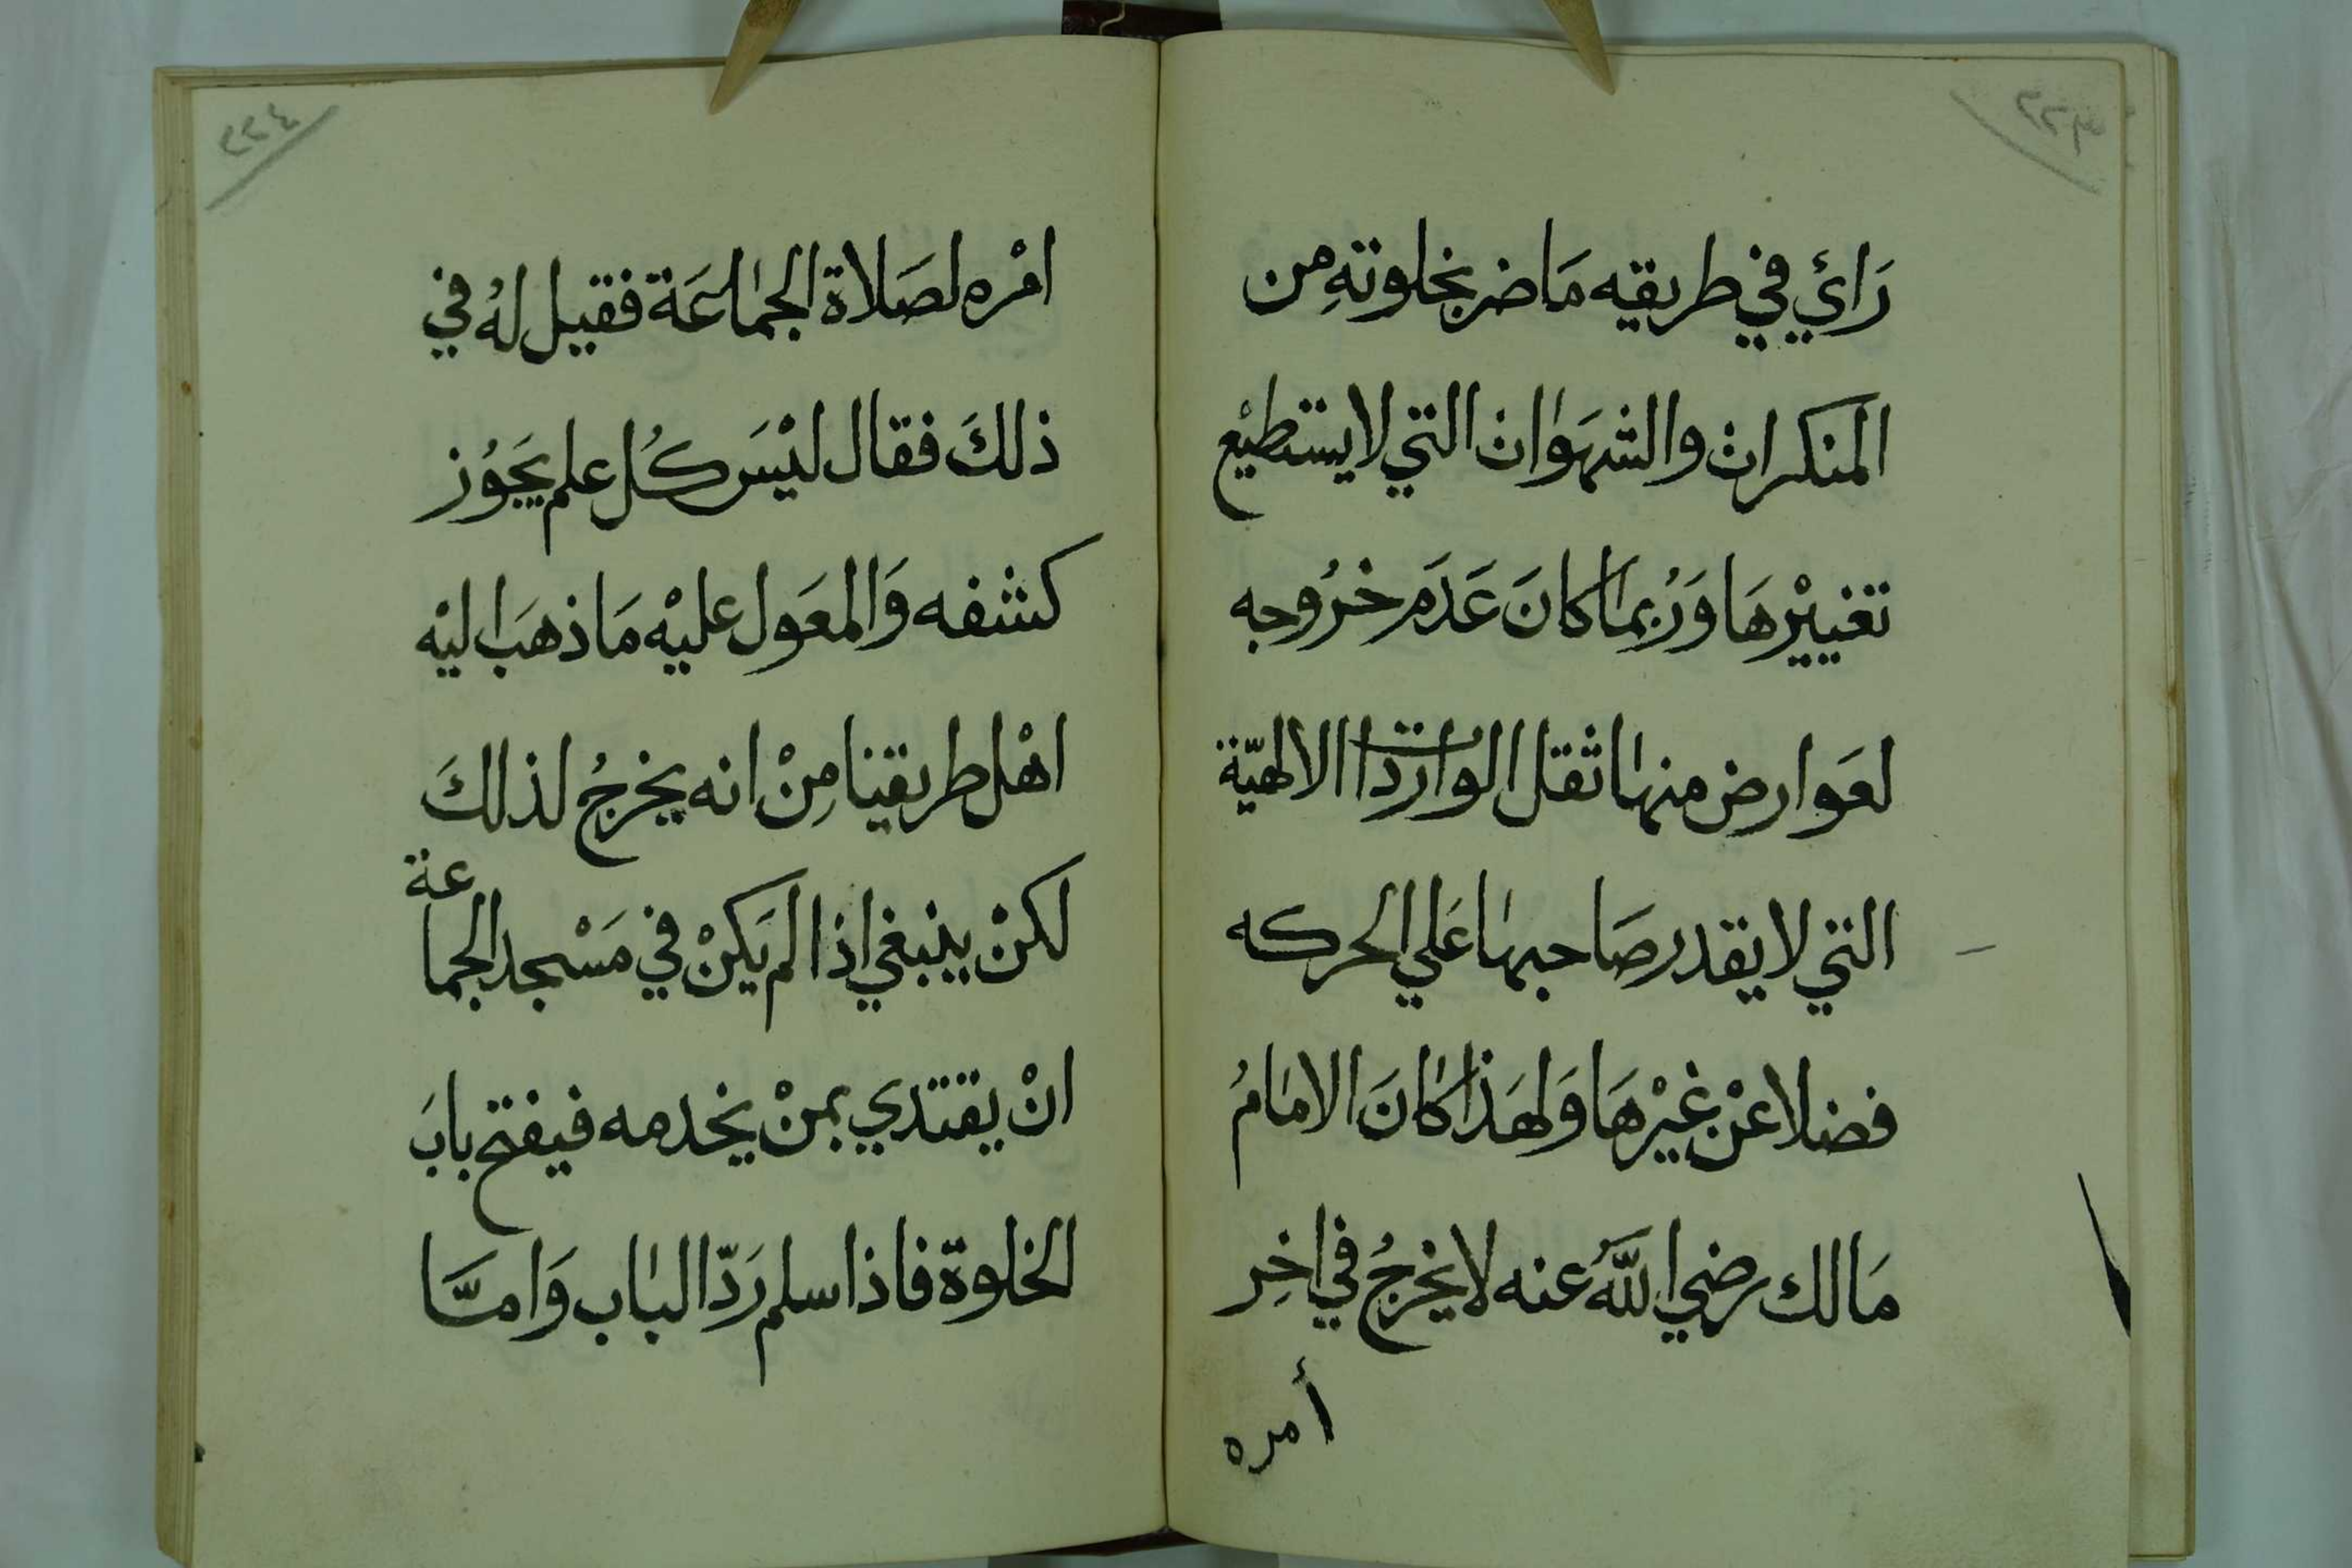 رَائي في طريقه مَا ضر بخلوتهِ من
المنكرات والشهَوات التي لا يستطيْع
تغييْرهَا وَرُبما كانَ عَدَم خرُوجه
لعَوارض منها ثقل الواردات الالهيّة
التي لا يقدر صَاحبها عَلي الحركه
فضلا عنْ غيْرهَا وَلهَذا كانَ الامامُ
مَالك رضي اللَّه عنه لا يخرجُ في اخِر
أمره
٢٢٤
امْره لصَلاة الجماعَة فقيل لهُ في
ذلكَ فقال ليْسَ كُل علم يَجوُز
كشفه وَالمعَول عليْه مَا ذهَب اليْه
اهْل طريقنا مِنْ انه يخرجُ لذلكَ
لكنْ ينبغي اذا لم يَكنْ في مَسْجد الجماعة
انْ يقتدي بمنْ يخدمه فيفتح بابَ
الخلوة فاذا سلم رَدّ الباب وَامَّا